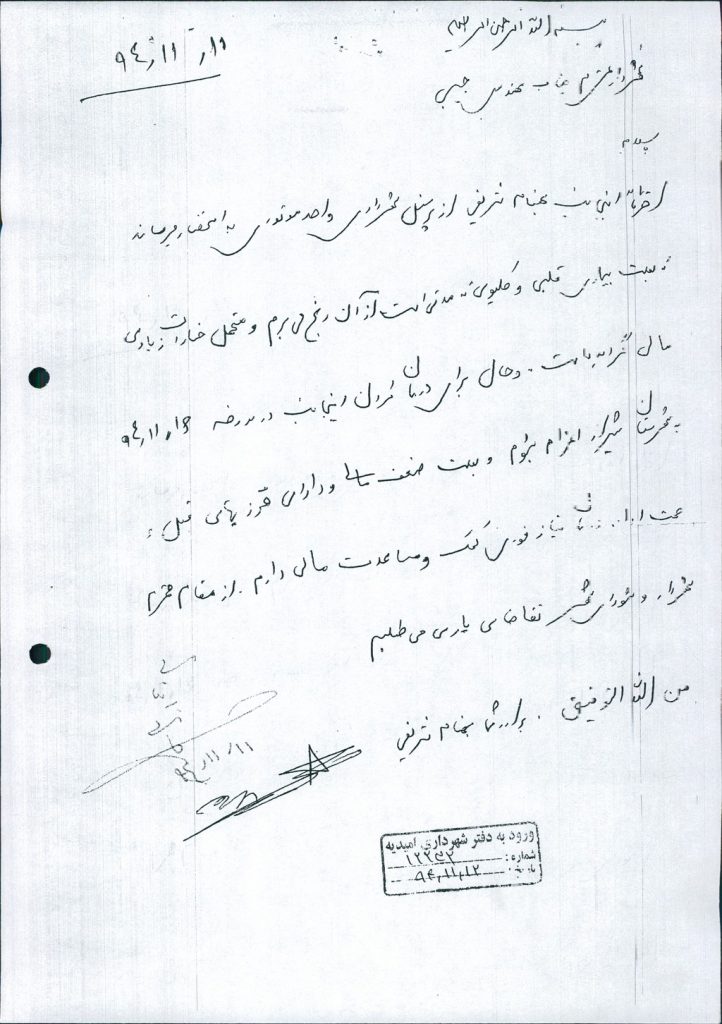 بسم الله الرحمن الرحیم
۹۴/۱۱/۱۱
شهردار محترم جناب مهندس حبیبی
سلام
احتراماً اینجانب بهنام شریفی از پرسنل شهرداری واحد موتوری به استحضار میرساند
به علت بیماری قلبی و کلیوی که مدتی است از آن رنج می برم و متحمل خسارات زیادی
مالی گردیده است . و حال برای درمان کردن اینجانب در مورخه ۹۴/۱۱/۱۶
به شهرستان شیراز اعزام بشوم و بعلت ضعف مالی و دارای قرض های قبلی
نیاز فوری کمک و مساعدت مالی دارم . از مقام محترم
شهردار و شورای شهر تقاضای یاری می طلبم
من الله التوفیق . برادر شما بهنام شریفی
۱۱/۱۱
ورود به دفتر شهرداری امیدیه
شماره : ۱۲۲۴۲
تاریخ : ۹۴/۱۱/۱۲